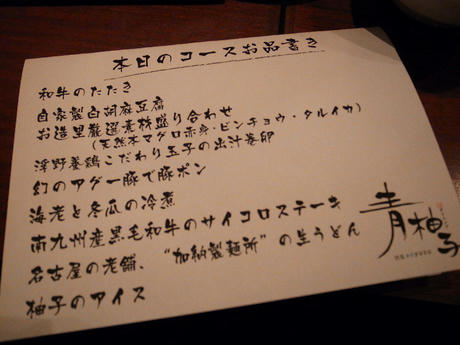 本日のコースお品書き
和牛のたたき
自家製白胡麻豆腐
お造里厳選素材盛り合わせ
(天然本マグロ赤身・ビンチョウ・タルイカ)
浮野養鶏こだわり玉子の出汁巻卵
幻のアグー豚で豚ポン
海老と冬瓜の冷煮
南九州産黒毛和牛のサイコロステーキ
名古屋の老舗、“加納製麺所”の生うどん
柚子のアイス
青柚子